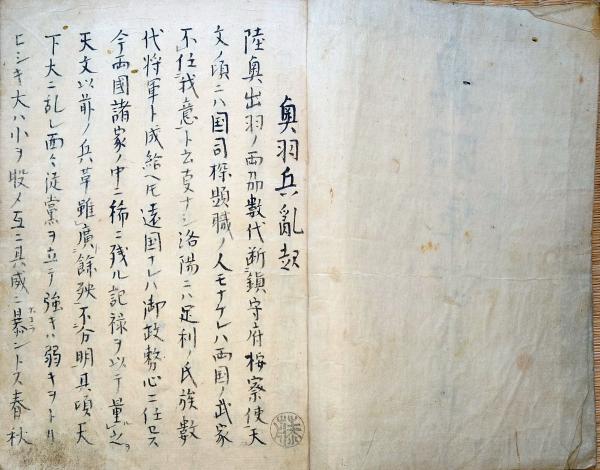 奥羽兵亂起
陸奥出羽ノ両州数代断鎮守府按察使天
文ノ頃ニハ国司探題職ノ人モナケレハ両国ノ武家
不任我意ト云夏ナシ洛陽ニハ足利ノ氏族数
代将軍ト成給ヘ𪜈遠国ナレハ御政務心ニ任セス
今両國諸家ノ中ニ稀ニ残ル記禄ヲ以テ量之
天文以前ノ兵革雖廣餘殃不分明其頃天
下大ニ乱レ面々徒黨ヲ立テ強キハ弱キヲトリ
ヒシキ大ハ小ヲ脱メ互ニ其威ニ暴ントス春秋
ホコラ